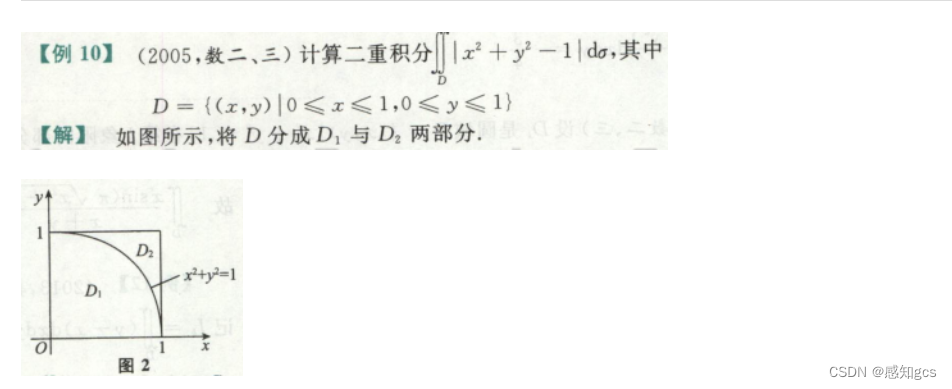 【例 10】 (2005,数二、三) 计算二重积分∬|x² + y² − 1|dσ,其中
D
D = {(x,y)|0 ⩽ x ⩽ 1,0 ⩽ y ⩽ 1}
【解】 如图所示,将 D 分成 D₁ 与 D₂ 两部分.
y
1
D₂
x²+y²=1
D₁
O 1 x
图 2
CSDN @感知gcs